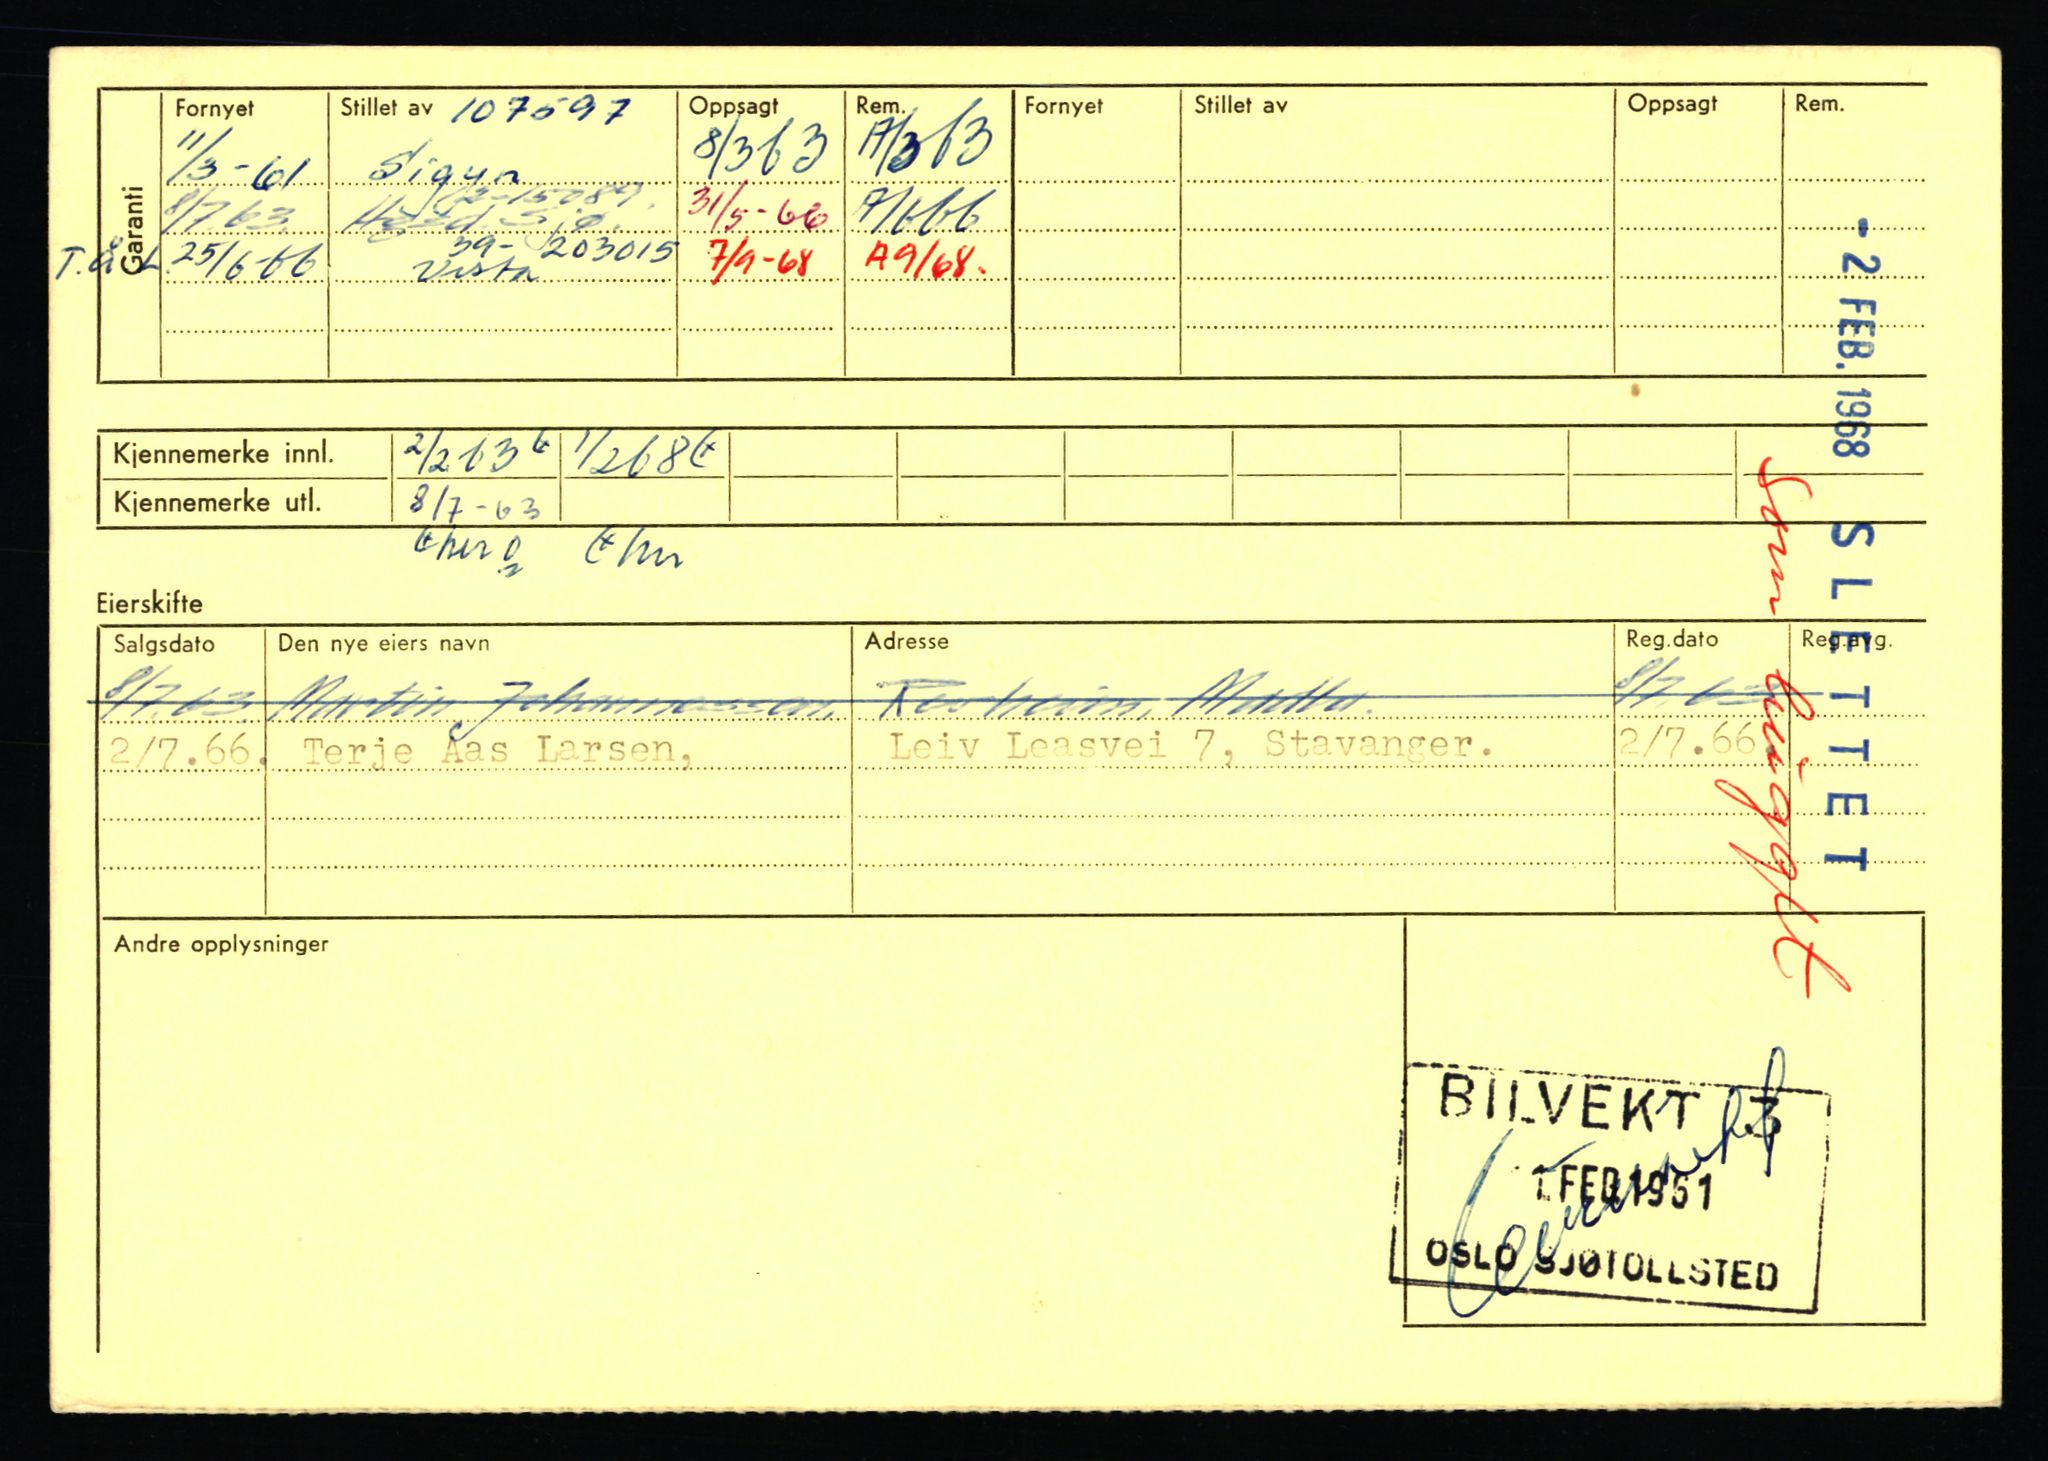 Garanti
Fornyet Stillet av 107597 Oppsagt Rem. Fornyet Stillet av Oppsagt Rem.
11/3-61 Sigyn 8/3 63 A/3 63
8/7.63. 31/5-66 A/6 66
T.Å.L. 25/6-66 39-203015 Vesta 7/9-68 A9/68.
Kjennemerke innl. 2/2 63 1/2 68
Kjennemerke utl. 8/7-63
Eierskifte
Salgsdato Den nye eiers navn Adresse Reg.dato Reg.avg.
8/7.63. Martin Johannessen, 8/7.63
2/7.66. Terje Aas Larsen, Leiv Leasvei 7, Stavanger. 2/7.66.
Andre opplysninger
- 2 FEB. 1968 SLETTET
Som huggt
BILVEKT 3
1 FEB 1961
OSLO SJØTOLLSTED